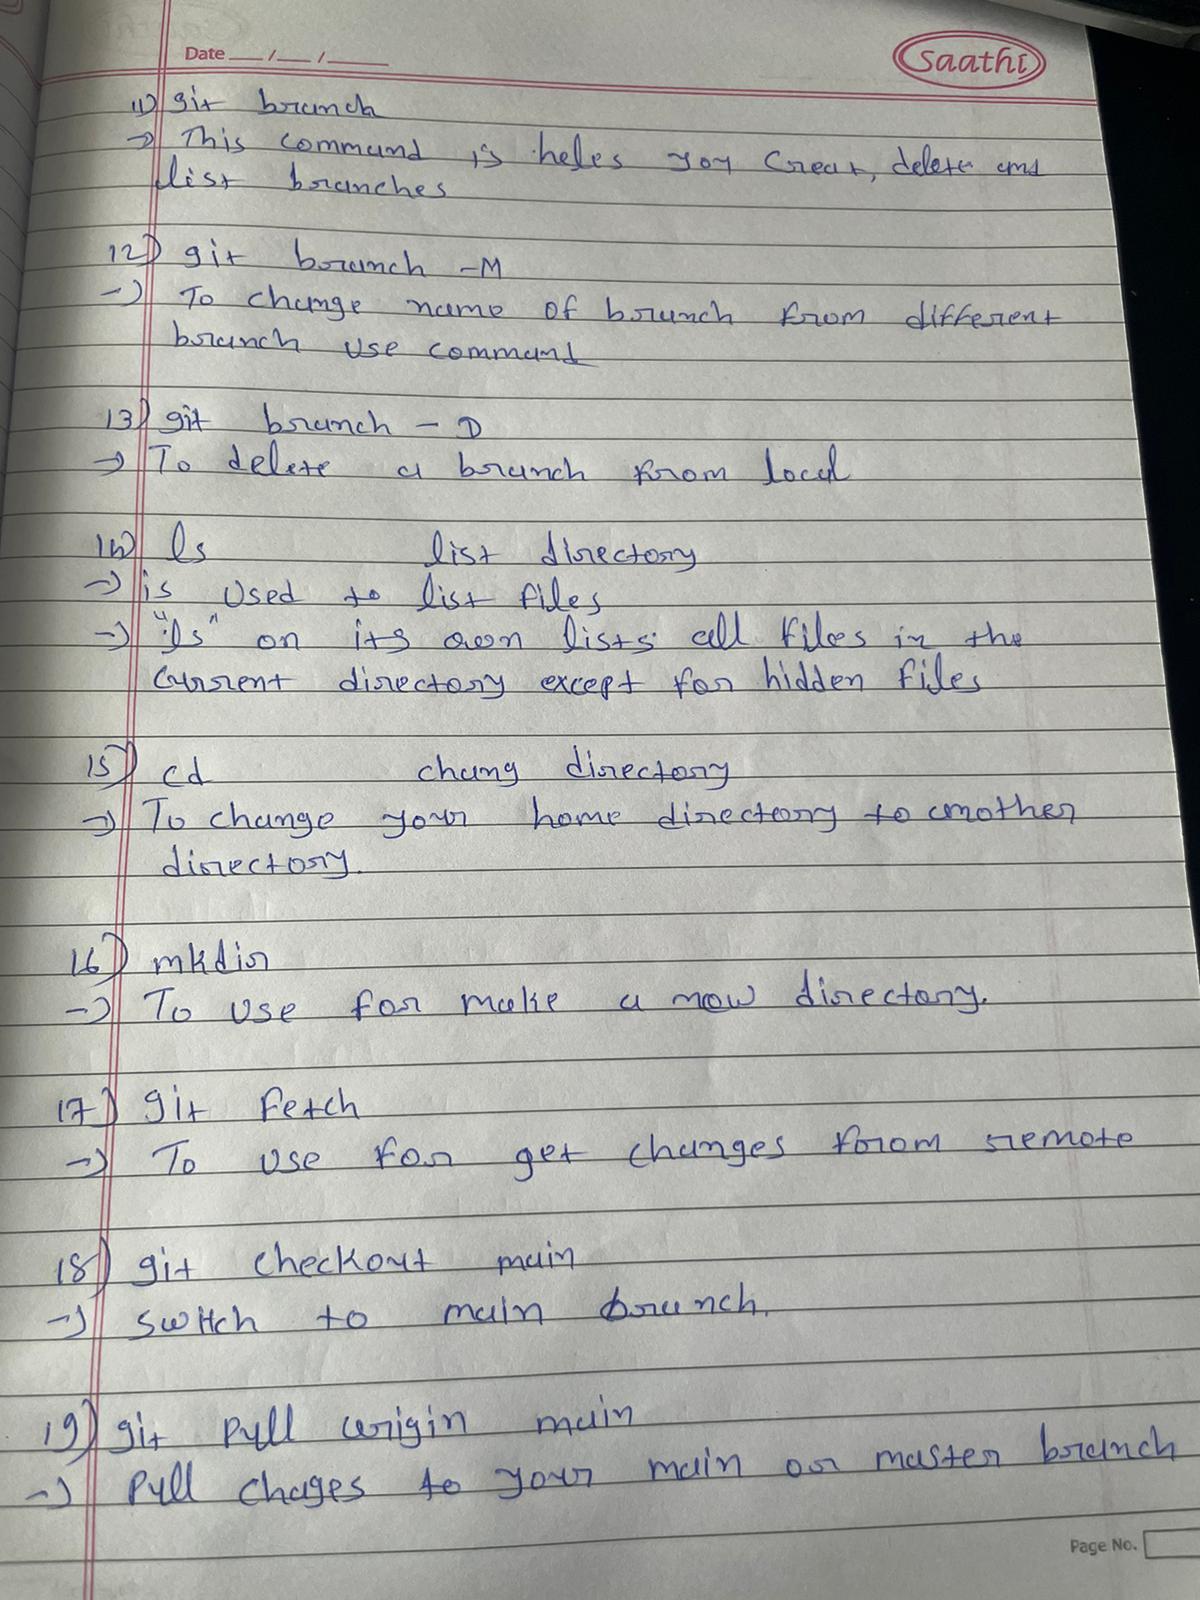 Date __/__/____
Saathi
11) git branch
→ This command is heles you Creat, delete and
list branches
12) git branch -M
→ To change name of branch from different
branch use command
13) git branch - D
→ To delete a branch from local
14) ls list directory
→ is used to list files
→ "ls" on its own lists all files in the
current directory except for hidden files
15) cd chang directory
→ To change your home directory to another
directory.
16) mkdir
→ To use for make a new directory.
17) git fetch
→ To use for get changes from remote
18) git checkout main
→ switch to main branch.
19) git pull origin main
→ pull chages to your main or master branch
Page No.